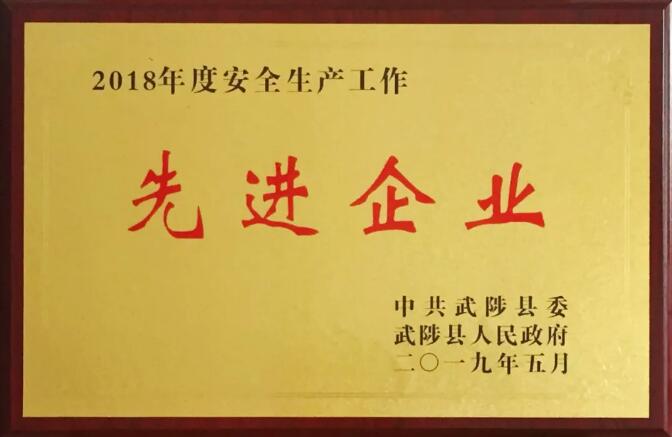 2018年度安全生产工作
先进企业
中共武陟县委
武陟县人民政府
二〇一九年五月